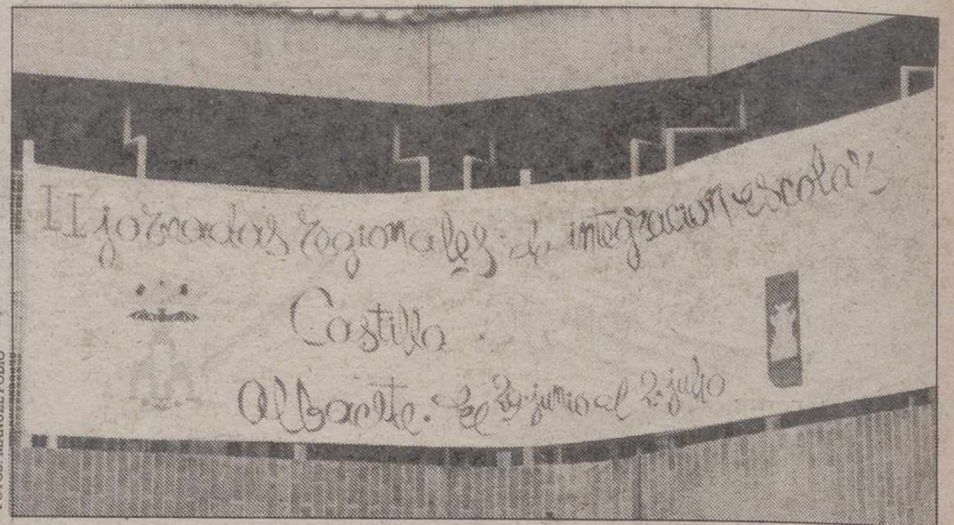 II jornadas regionales de integracion escolar
Castilla
Albacete. del 29 junio al 2 julio
FOTOS: MANUEL PODIO